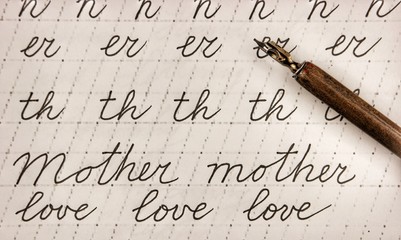 n n n n n n n
er er er er er
th th th th th
Mother mother
love love love